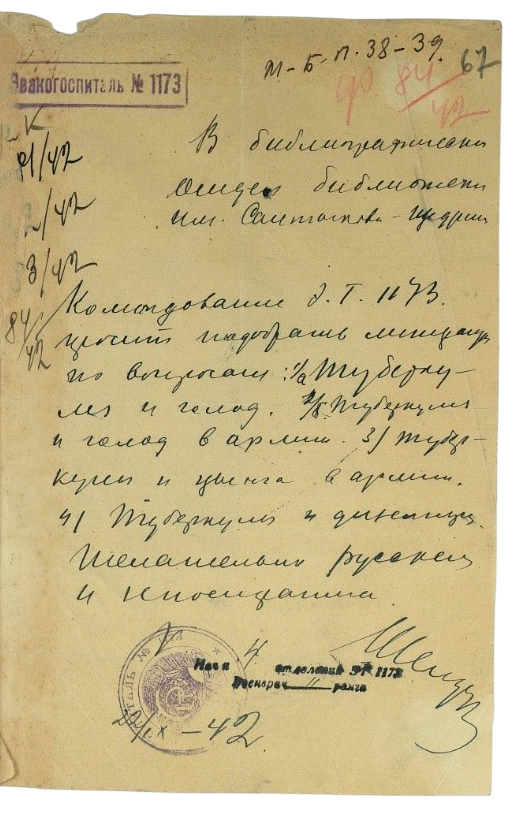 Эвакогоспиталь № 1173
М-Б-П-38-39. 67
84
42
81/42
2/42
3/42
84/42
В библиографический
отдел библиотеки
им. Салтыкова-Щедрина
Командование Э.Г. 1173.
просит подобрать литературу
по вопросам: 1/а Туберку-
лез и голод. Туберкулез
и голод в армии. 3) Тубер-
кулез и цынга в армии.
4) Туберкулез и
Желательно русская
и
Нач. 4 отделения ЭГ 1173
Военврач II ранга
ТАЛЬ № 1173
-42.